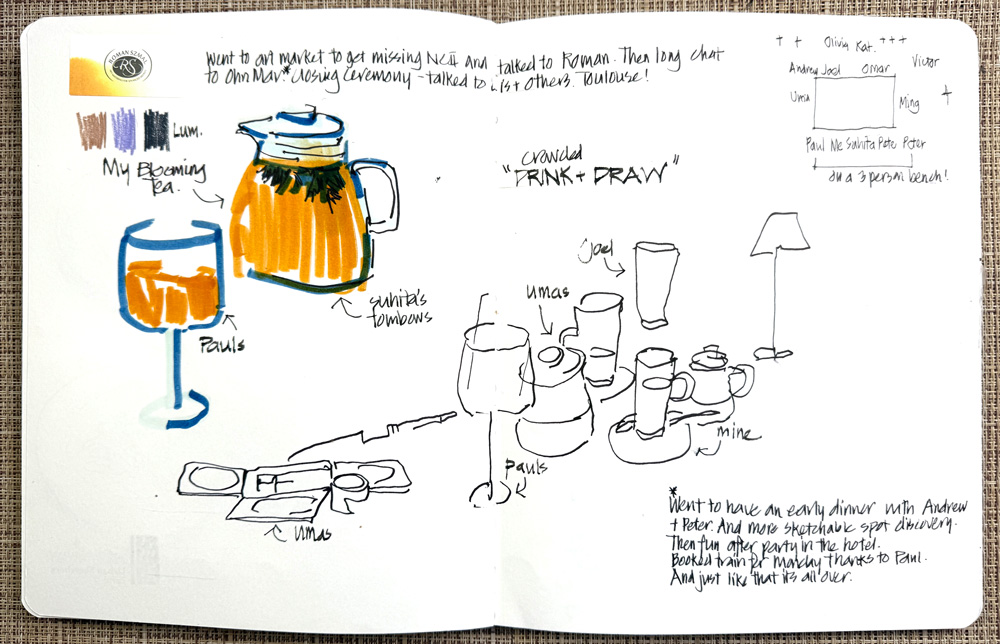 ROMAN SZMAL
RS
Went to art market to get missing NC II and talked to Roman. Then long chat
to Ohn Mar.* Closing Ceremony - talked to Lis + others. Toulouse!
Lum.
My Blooming
Tea.
suhita's
tombows
Pauls
crowded
"DRINK + DRAW"
+ + Olivia Kat. + + +
Andrew Joel Omar Victor
Uma Ming +
Paul Me Suhita Pete Peter
On a 3 person bench!
Joel
umas
Pauls
mine
PF
umas
*Went to have an early dinner with Andrew
+ Peter. And more sketchable spot discovery.
Then fun after party in the hotel.
Booked train for Monday thanks to Paul.
And just like that its all over.